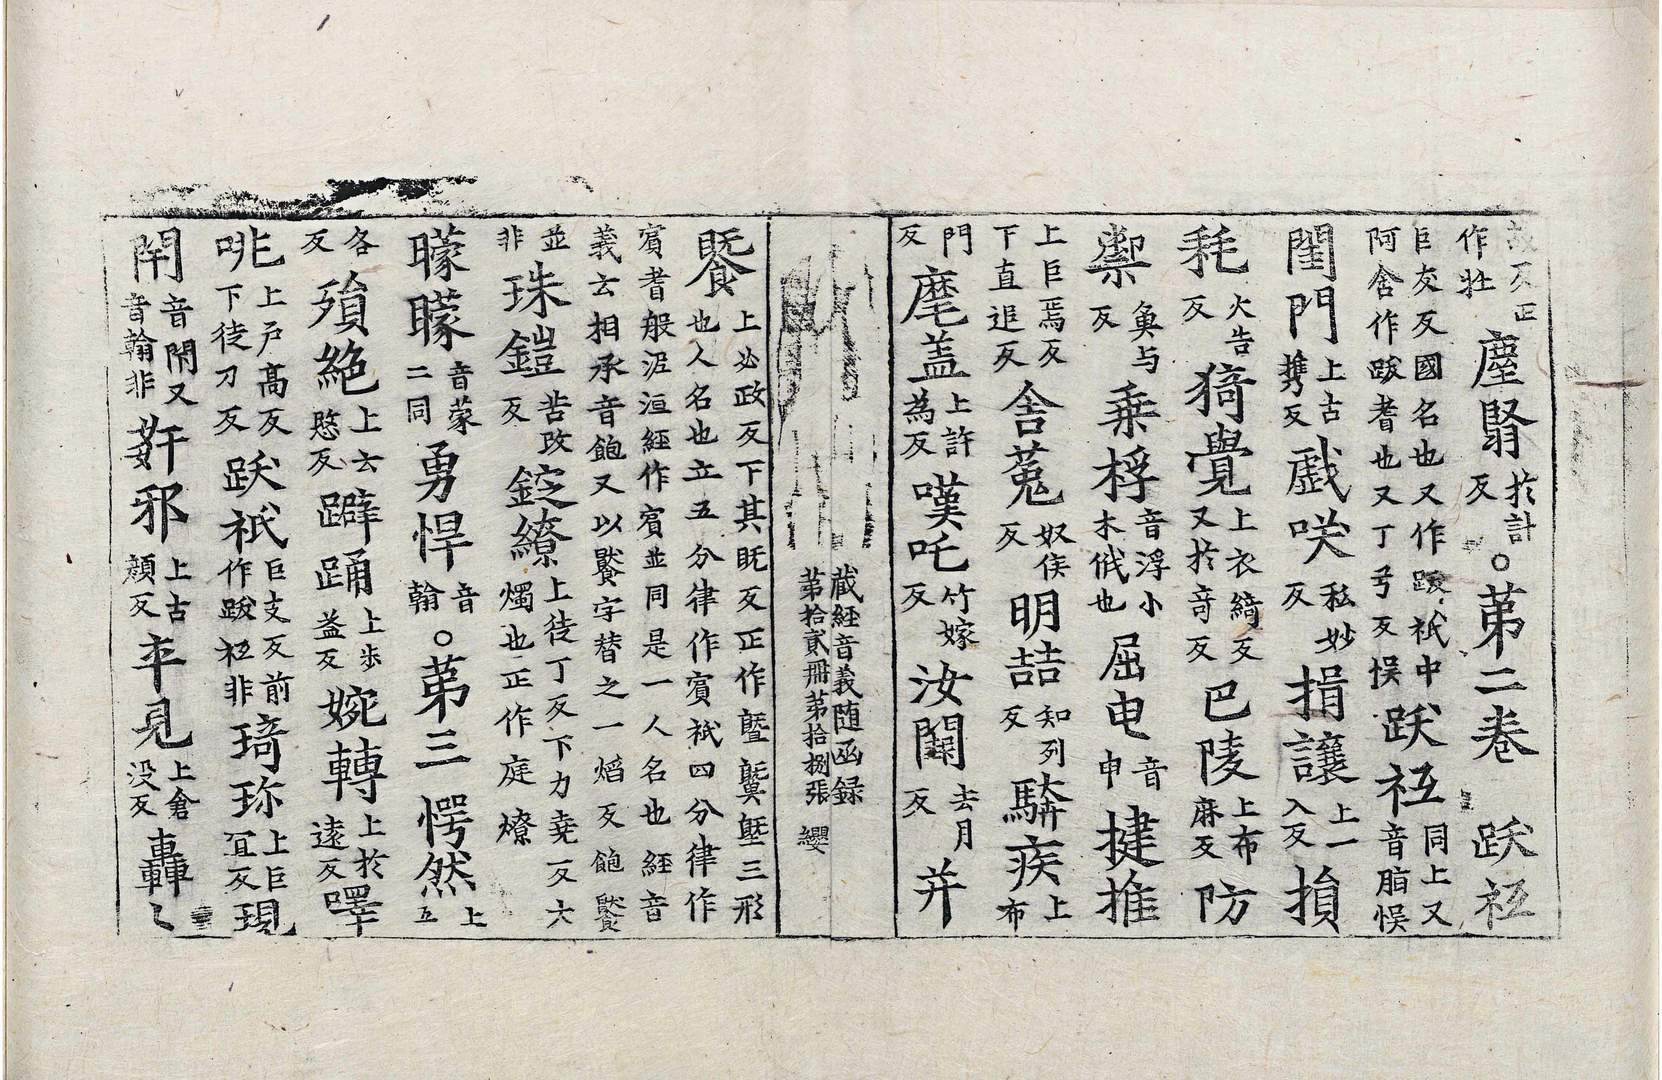 故反正作牡 塵翳於計反 。第二卷 跃祇
巨支反國名也又作跋祇中阿舍作跋耆也又丁兮反悮 跃祇同上又音脂悮
閨門上古携反 戲咲私妙反 揖讓上一入反 損
耗火告反 猗覺上衣綺反又於竒反 巴陵上布麻反 防
禦魚与反 乗桴音浮小木栰也 屈电音申 揵推
上巨焉反下直追反 舍菟奴侯反 明喆知列反 騈疾上布
門反 麾盖上許為反 嘆吒竹嫁反 汝闕去月反 并
藏經音義随函録 第拾貳冊第拾捌張 纓
餮上必政反下其既反正作曁蔇塈三形也人名也立五分律作賓祇四分律作
賓耆般泥洹經作賓並同是一人名也經音義云相承音飽又以餮字替之一焰反飽餮
並非 珠鎧苦改反 錠繚上徒丁反下力堯反六燭也正作庭燎
矇矇音蒙二同 勇悍音翰 。第三 愕然上五
各反 殞絶上云愍反 躃踊上步益反 婉轉上於逺反 嘷
咷上戶高反下徒刀反 跃祇巨支反前作跋祇非 琦珎上巨冝反 現
閈音閑又音翰非 姧邪上古顔反 卒見上倉没反 轟之